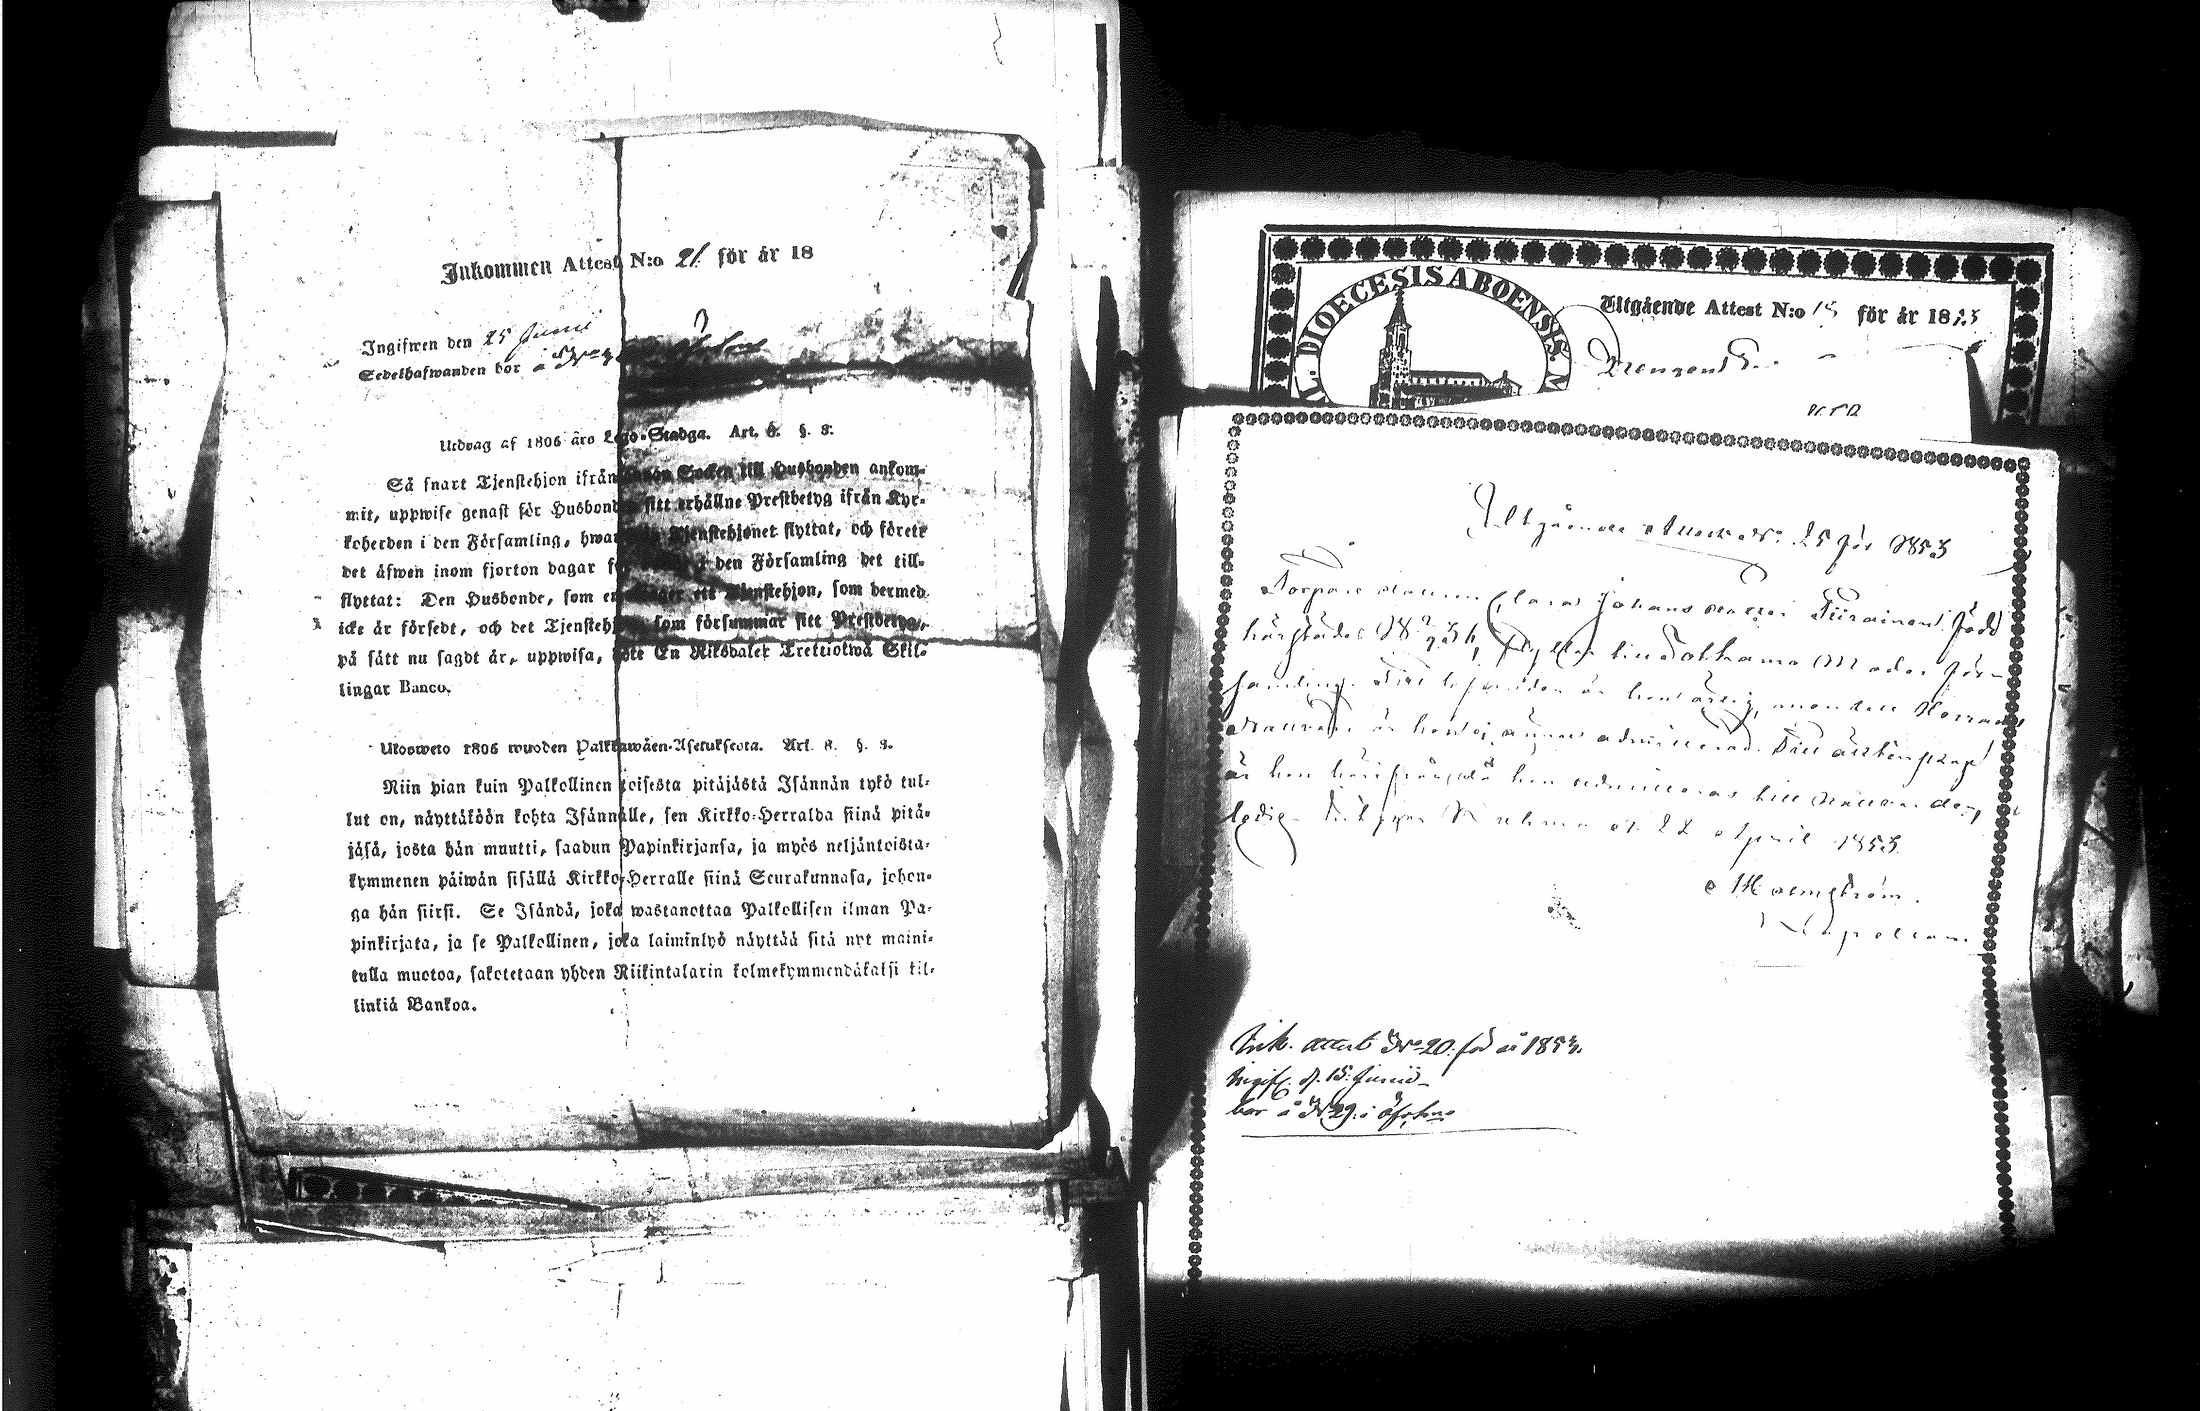 Inkommen Attest N:o 21 för år 18
Ingifwen den 25 Junii
Sedelhafwanden bor å N:o
Utdrag af 1806 års Lego-Stadga. Art. 8. §. 8.
Så snart Tjenstehjon ifrån annan Socken till Husbonden ankom-
mit, uppwise genast för Husbonden sitt erhållne Prestbetyg ifrån Kyr-
koherden i den Församling, hwarifrån Tjenstehjonet flyttat, och förete
det äfwen inom fjorton dagar för i den Församling det till-
flyttat: Den Husbonde, som emottager ett Tjenstehjon, som dermed
icke är försedt, och det Tjenstehjon, som försummar sitt Prestbetyg,
på sätt nu sagdt är, uppwisa, böte En Riksdaler Trettiotwå Skil-
lingar Banco.
Ulosweto 1806 wuoden Palkkawäen-Asetuksesta. Art. 8. §. 8.
Niin pian kuin Palkollinen toisesta pitäjästä Isännän tykö tul-
lut on, näyttäköön kohta Isännälle, sen Kirkko-Herralda siinä pitä-
jäsä, josta hän muutti, saadun Papinkirjansa, ja myös neljäntoista-
kymmenen päiwän sisällä Kirkko-Herralle siinä Seurakunnasa, johon-
ga hän siirsi. Se Isändä, joka wastanottaa Palkollisen ilman Pa-
pinkirjata, ja se Palkollinen, joka laiminlyö näyttää sitä nyt maini-
tulla muotoa, sakotetaan yhden Riikintalarin kolmekymmendäkaksi kil-
linkiä Bankoa.
DIOECESIS ABOENSIS
Utgående Attest N:o 15 för år 1853
Utgående Attest N:o 25 för 1853
Torpare Clara Johansdotter Tiirainen, född
härstädes flyttar till Sotkamo Moder för-
samling. Till lefnaden är hon ärlig, men den Herrans
Nattvard är hon ej ännu admitterad. Till äktenskap
är hon härifrån, då hon admitteras till Nattvarden,
ledig. d. 22 April 1853.
Holmström.
Capellan.
Ink. attest No 20 för år 1853.
Ingifv. d. 15 Junii
bor å No 29 i